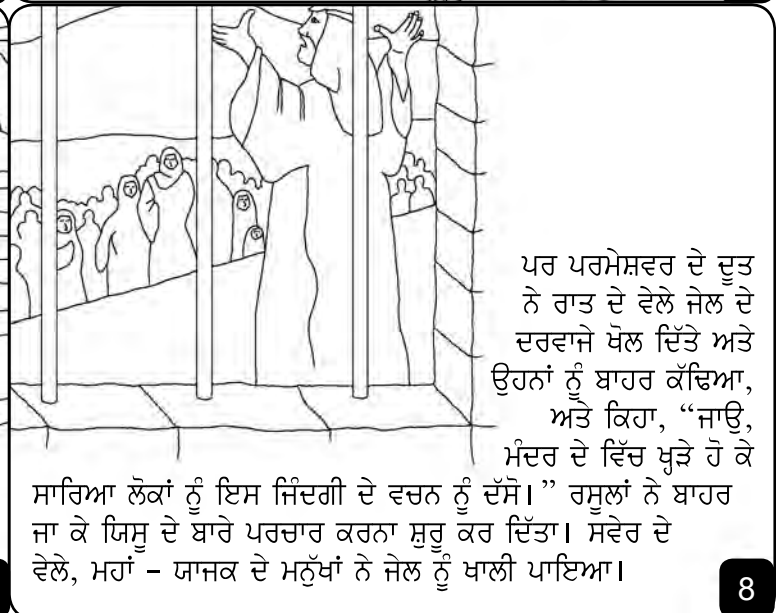 ਪਰ ਪਰਮੇਸ਼ਵਰ ਦੇ ਦੂਤ
ਨੇ ਰਾਤ ਦੇ ਵੇਲੇ ਜੇਲ ਦੇ
ਦਰਵਾਜੇ ਖੋਲ ਦਿੱਤੇ ਅਤੇ
ਉਹਨਾਂ ਨੂੰ ਬਾਹਰ ਕੱਢਿਆ,
ਅਤੇ ਕਿਹਾ, “ਜਾਉ,
ਮੰਦਰ ਦੇ ਵਿੱਚ ਖੜੇ ਹੋ ਕੇ
ਸਾਰਿਆ ਲੋਕਾਂ ਨੂੰ ਇਸ ਜਿੰਦਗੀ ਦੇ ਵਚਨ ਨੂੰ ਦੱਸੋ।” ਰਸੂਲਾਂ ਨੇ ਬਾਹਰ
ਜਾ ਕੇ ਯਿਸੂ ਦੇ ਬਾਰੇ ਪਰਚਾਰ ਕਰਨਾ ਸ਼ੁਰੂ ਕਰ ਦਿੱਤਾ। ਸਵੇਰ ਦੇ
ਵੇਲੇ, ਮਹਾਂ – ਯਾਜਕ ਦੇ ਮਨੁੱਖਾਂ ਨੇ ਜੇਲ ਨੂੰ ਖਾਲੀ ਪਾਇਆ।
8